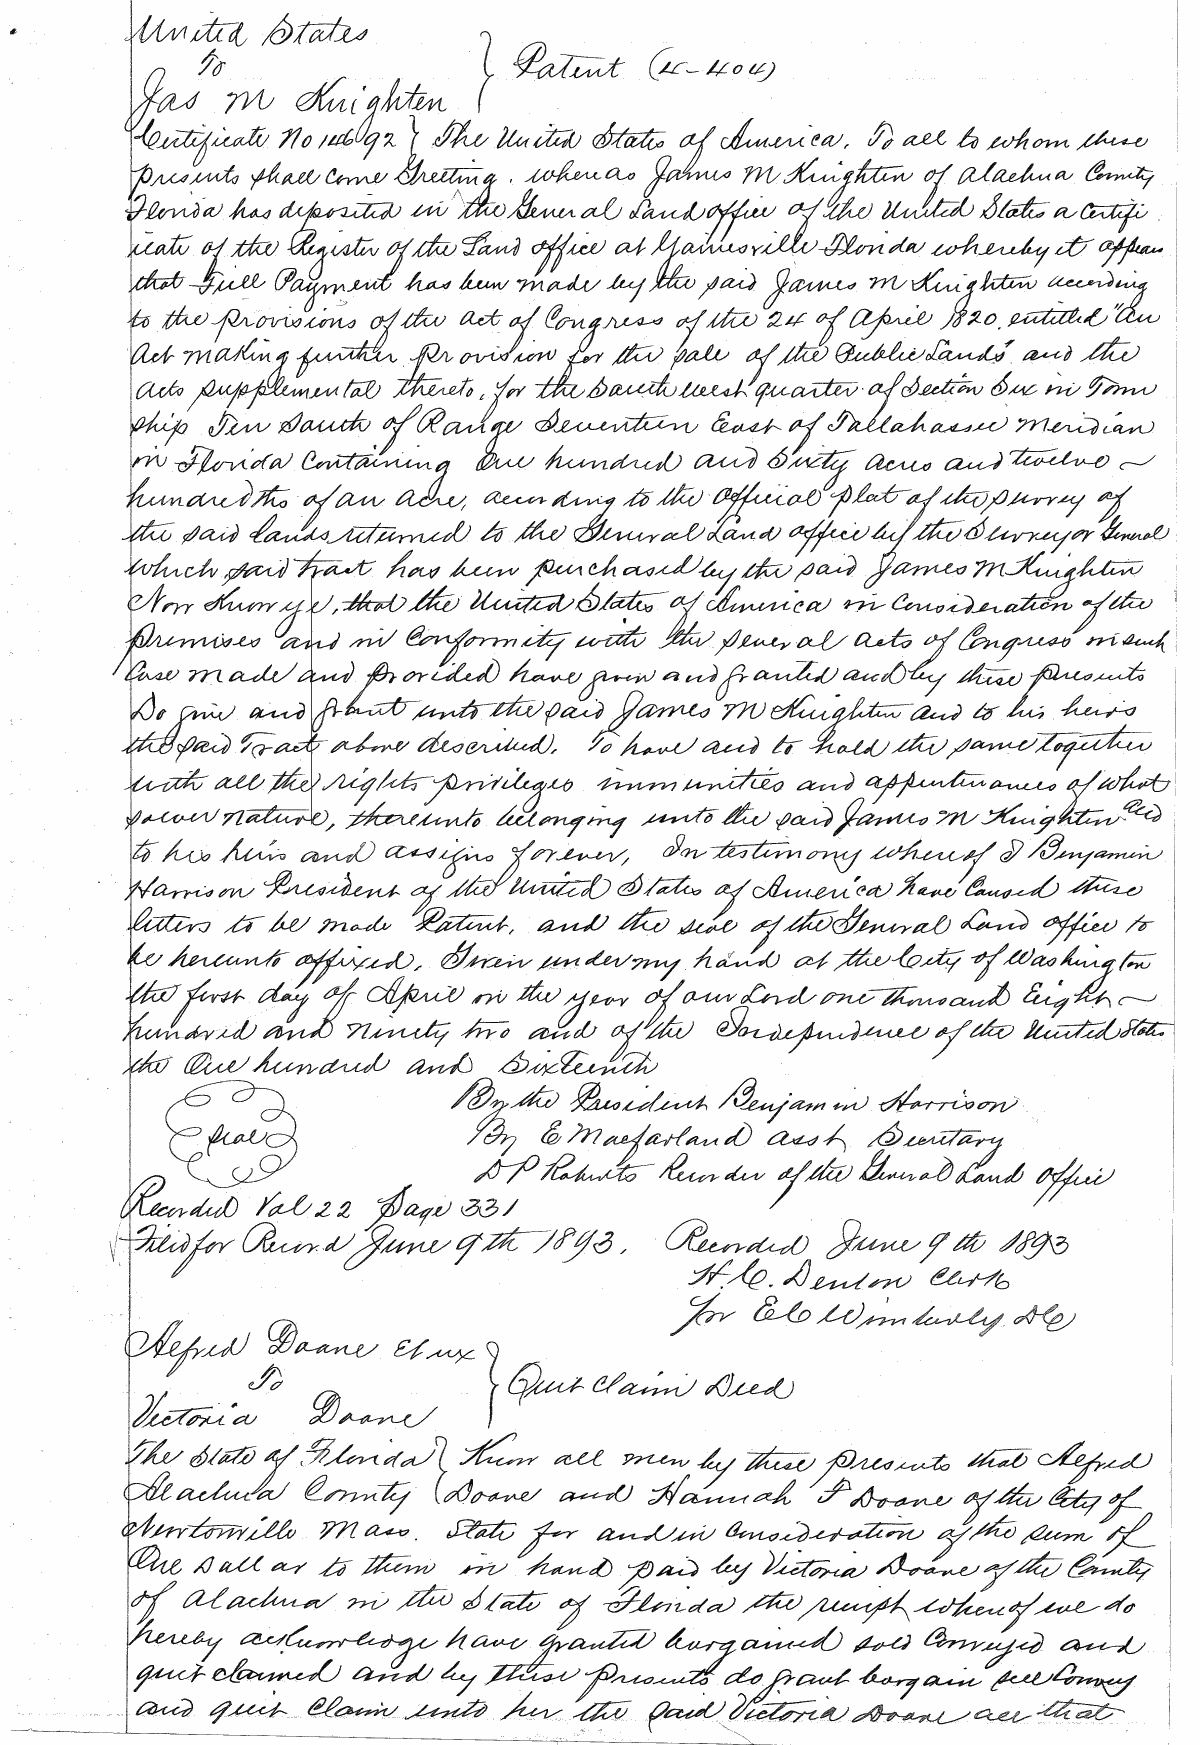 United States
To
Patent (4-404)
Jas M Knighten
Certificate No 14692 } The United States of America, To all to whom these
presents shall come Greeting. whereas James M Knighten of Alachua County
Florida has deposited in the General Land office of the United States a Certifi
icate of the Register of the Land office at Gainesville Florida whereby it appears
that Full Payment has been made by the said James M Knighten according
to the provisions of the act of Congress of the 24 of April 1820, entitled "An
Act making further provision for the sale of the Public Lands" and the
acts supplemental thereto, for the South west quarter of Section Six in Town
ship Ten South of Range Seventeen East of Tallahassee Meridian
in Florida Containing One hundred and Sixty Acres and twelve
hundredths of an acre, according to the official plat of the survey of
the said lands returned to the General Land office by the Surveyor General
which said tract has been purchased by the said James M Knighten
Now Know ye, that the United States of America in Consideration of the
premises and in Conformity with the several acts of Congress in such
Case made and provided have given and granted and by these presents
Do give and grant unto the said James M Knighten and to his heirs
the said Tract above described. To have and to hold the same together
with all the rights privileges immunities and appurtenances of what
soever nature, thereunto belonging unto the said James M Knighten and
to his heirs and assigns forever, In testimony whereof I Benjamin
Harrison President of the United States of America have Caused these
letters to be made Patent, and the seal of the General Land office to
be hereunto affixed. Given under my hand at the City of Washington
the first day of April in the year of our Lord one thousand Eight
hundred and ninety two and of the Independence of the United States
the One hundred and Sixteenth
By the President Benjamin Harrison
Seal
By E Macfarland asst Secretary
D P Roberts Recorder of the General Land Office
Recorded Vol 22 Page 331
Filed for Record June 9th 1893. Recorded June 9th 1893
H. C. Denton Clerk
for E C Wimberly DC
Alfred Doane et ux
To
Quit Claim Deed
Victoria Doane
The State of Florida } Know all men by these presents that Alfred
Alachua County } Doane and Hannah F Doane of the City of
Newtonville Mass. State for and in Consideration of the sum of
One Dollar to them in hand paid by Victoria Doane of the County
of Alachua in the State of Florida the receipt whereof we do
hereby acknowledge have granted bargained sold Conveyed and
quit claimed and by these presents do grant bargain sell Convey
and quit Claim unto her the said Victoria Doane all that